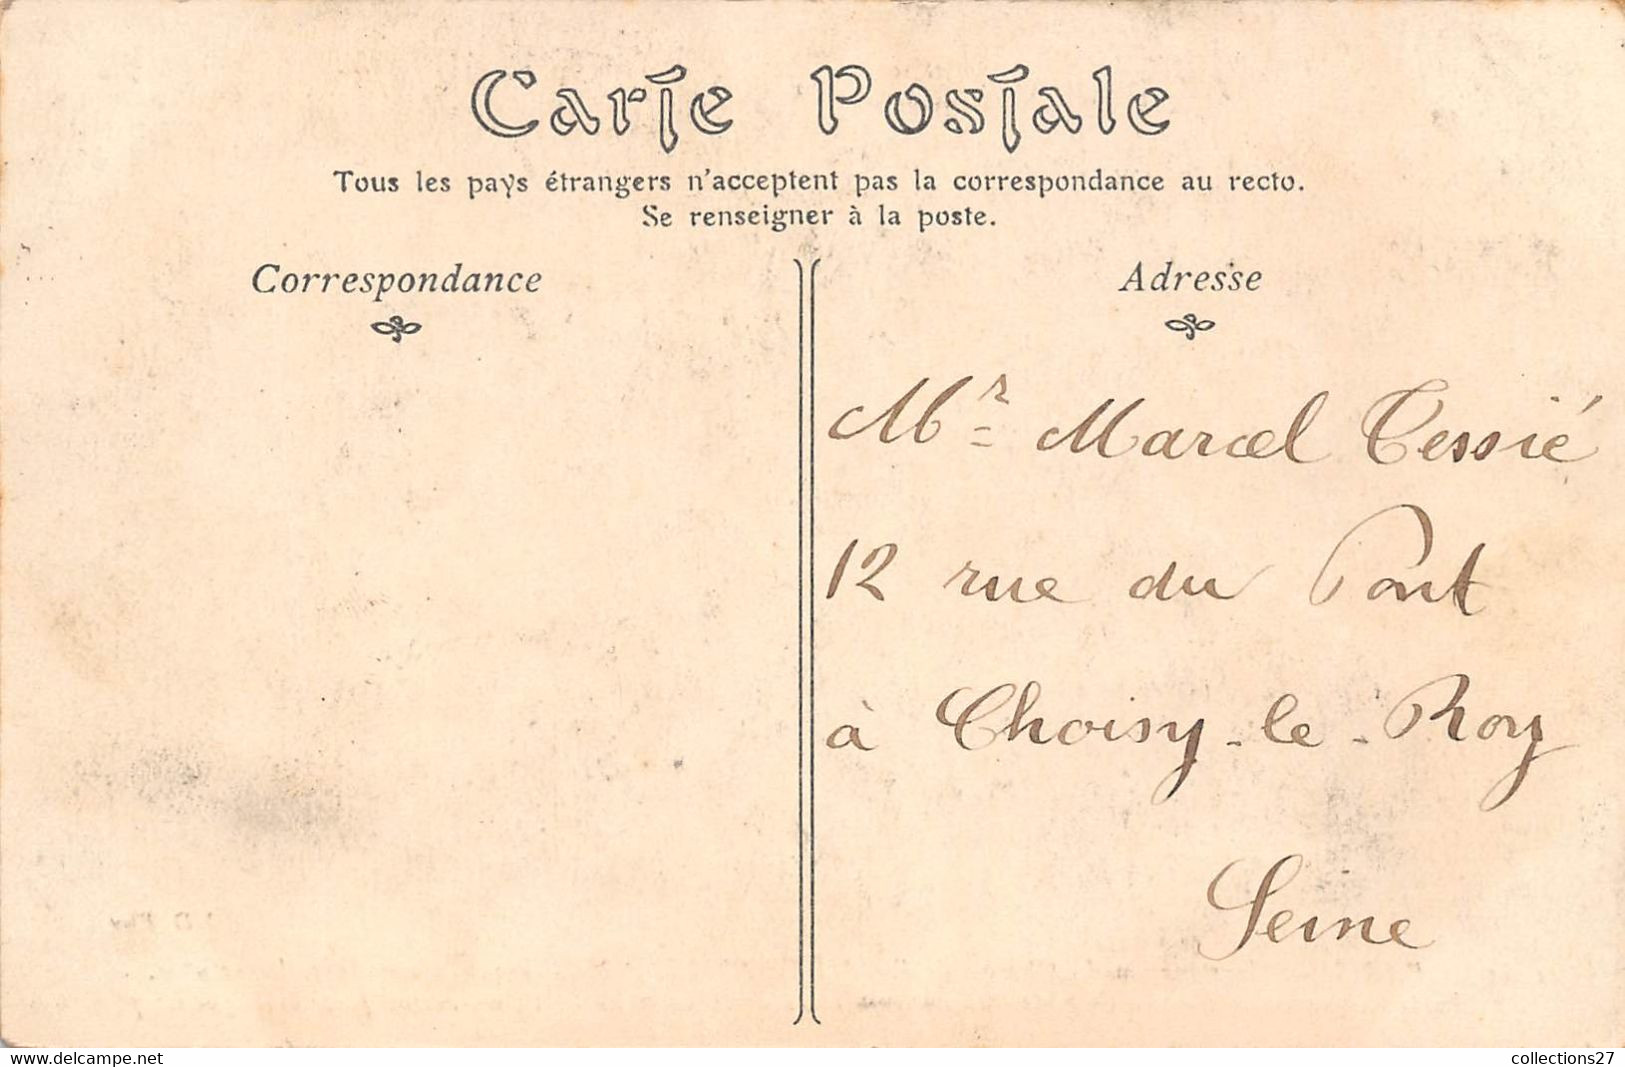 Carte Postale
Tous les pays étrangers n'acceptent pas la correspondance au recto.
Se renseigner à la poste.
Correspondance
Adresse
Mr Marcel Tessié
12 rue du Pont
à Choisy-le-Roy
Seine
www.delcampe.net
collections27